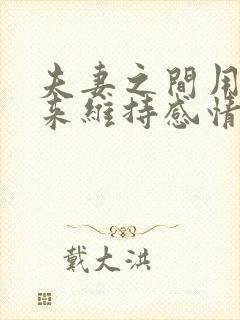 夫妻之間用
来維持感情
戴大洪